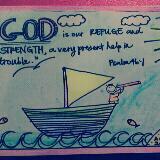 GOD is our REFUGE and
STRENGTH, a very present help in
trouble."
Psalm 46:1